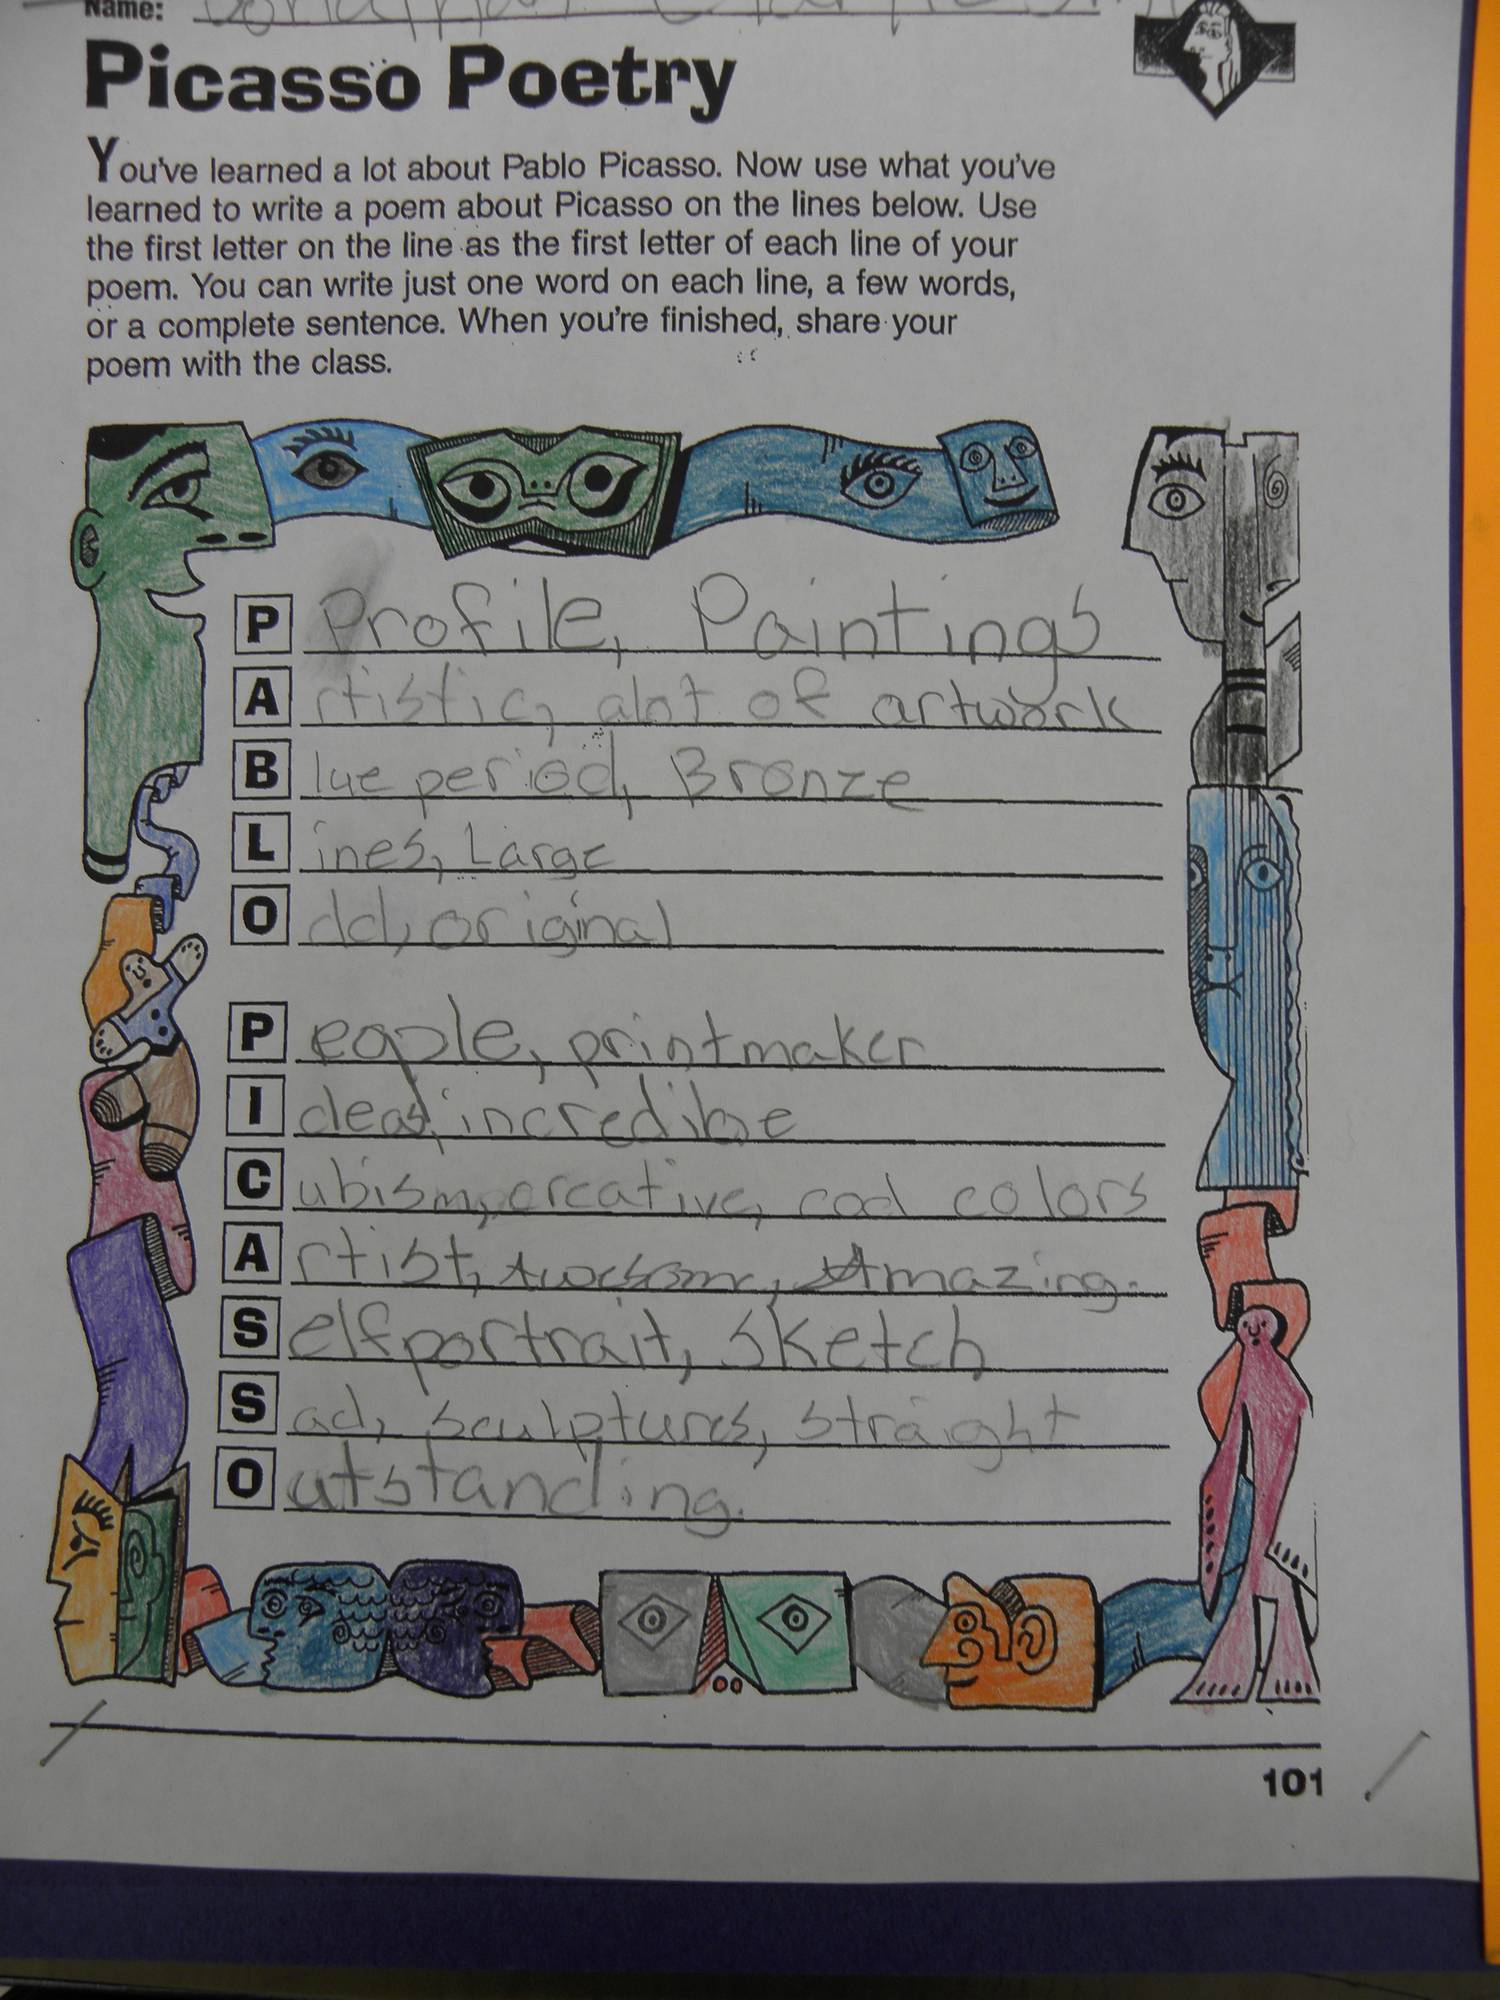 Name:
Picasso Poetry
You've learned a lot about Pablo Picasso. Now use what you've
learned to write a poem about Picasso on the lines below. Use
the first letter on the line as the first letter of each line of your
poem. You can write just one word on each line, a few words,
or a complete sentence. When you're finished, share your
poem with the class.
P Profile, Paintings
A rtistic, alot of artwork
B lue period, Bronze
L ines, Large
O dd, original
P eaple, printmaker
I deas, incredible
C ubism, creative, cool colors
A rtist, Awesome, Amazing.
S elfportrait, sketch
S ad, sculptures, straight
O utstanding.
101